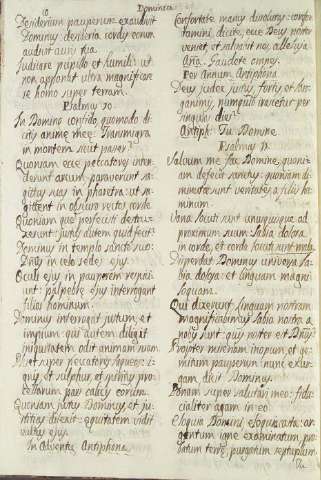 10
Dominica
Desiderium pauperum exaudivit
Dominus: desideria cordis eorum
audivit auris tua.
Judicare pupillo et humili: ut
non apponat ultra magnificare
se homo super terram.
Psalmus 10.
In Domino confido quomodo di
citis anime mee: Transmigra
in montem sicut passer?
Quoniam ecce peccatores inten
derunt arcum paraverunt sa
gittas suas in pharetra: ut sa
gittent in obscuro rectos corde
Quoniam que perfecisti destru
xerunt: justus autem quid fecit?
Dominus in templo sancto suo:
Dñus in celo sedes ejus.
Oculi ejus in pauperem respici
unt: palpebre ejus interrogant
filios hominum.
Dominus interrogat justum, et
impium: qui autem diligit
iniquitatem odit animam suam
Pluet super peccatores laqueos: i-
gnis, et sulphur, et spiritus pro
cellarum pars calicis eorum.
Quoniam justus Dominus, et ju-
stitias dilexit: equitatem vidit
vultus ejus.
In Adventu Antiphona
confortate manus dissolutas: confor
tamini, dicite, ecce Deus noster
veniet, et salvabit nos, alleluya
Aña. Gaudete omnes.
Per Annum Antiphona
Deus judex justus, fortis, et lon
ganimis, numquid irascetur per
singulos dies?
Antiph. Tu Domine
Psalmus 11.
Salvum me fac Domine, quoni-
am defecit sanctus: quoniam di
minute sunt veritates a filiis ho
minum.
Vana locuti sunt unusquisque ad
proximum suum: labia dolosa
in corde, et corde locuti sunt mala
Disperdat Dominus universa la
bia dolosa: et linguam magni
loquam.
Qui dixerunt, linguam nostram
magnificabimus, labia nostra a
nobis sunt: quis noster est Dñus?
Propter miseriam inopum, et ge-
mitum pauperum: nunc exsur
gam dicit Dominus.
Ponam super salutari meo: fidu
cialiter agam in eo
Eloquia Domini eloquia casta: ar
gentum igne examinatum pro
batum terre, purgatum septuplum